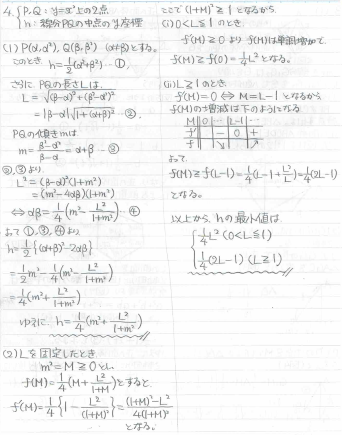 4. { P,Q : y=x²上の2点
{ h : 線分PQの中点のy座標
(1) P(α,α²), Q(β,β²) (α≠β)とする。
このとき h=1/2(α²+β²) …①,
さらに PQの長さLは,
L=√((β-α)²+(β²-α²)²)
=|β-α|√(1+(α+β)²) …②,
PQの傾きmは
m=(β²-α²)/(β-α)=α+β …③
②,③より,
L²=(β-α)²(1+m²)
=(m²-4αβ)(1+m²)
⇔ αβ=1/4(m²-L²/(1+m²)) …④
よって①,③,④より
h=1/2{(α+β)²-2αβ}
=1/2m²-1/4(m²-L²/(1+m²))
=1/4(m²+L²/(1+m²))
ゆえに h=1/4(m²+L²/(1+m²))
(2) Lを固定したとき
m²=M≧0とし,
f(M)=1/4(M+L²/(1+M))とすると
f'(M)=1/4{1-L²/(1+M)²}=((1+M)²-L²)/4(1+M)²
となる。
ここで(1+M)²≧1となるから
(i) 0<L≦1のとき
f'(M)≧0よりf(M)は単調増加で
f(M)≧f(0)=1/4L²となる。
(ii) L≧1のとき,
f'(M)=0⇔M=L-1となるから,
f(M)の増減は下のようになる
M 0 … L-1 …
f' - 0 +
f ↘ ↗
よって
f(M)≧f(L-1)=1/4(L-1+L²/L)=1/4(2L-1)
となる。
以上から, hの最小値は
{ 1/4L² (0<L≦1)
{ 1/4(2L-1) (L≧1)